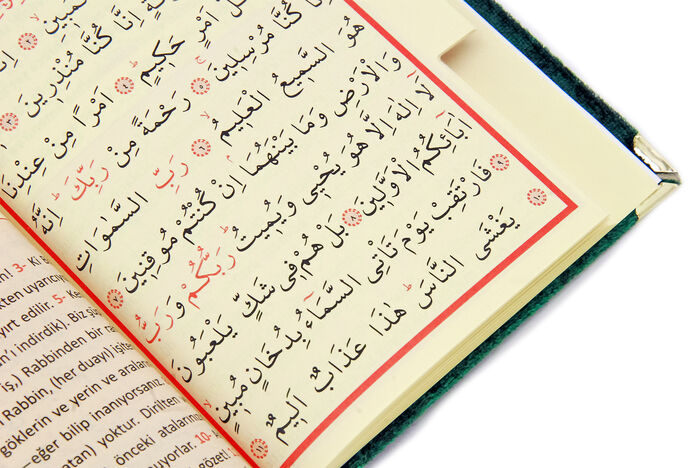 ـمُبِينِ ﴿٢﴾ اِنَّا
اِنَّا كُنَّا مُنْذِرِينَ ﴿٣﴾
اَمْرٍ حَكِيمٍ ﴿٤﴾ اَمْرًا مِنْ عِنْدِنَا
اِنَّا كُنَّا مُرْسِلِينَ ﴿٥﴾ رَحْمَةً مِنْ رَبِّكَ اِنَّهُ
هُوَ السَّمِيعُ الْعَلِيمُ ﴿٦﴾ رَبِّ السَّمٰوَاتِ
وَالْاَرْضِ وَمَا بَيْنَهُمَا اِنْ كُنْتُمْ مُوقِنِينَ ﴿٧﴾
لَا اِلٰهَ اِلَّا هُوَ يُحْيِى وَيُمِيتُ رَبُّكُمْ وَرَبُّ
اٰبَائِكُمُ الْاَوَّلِينَ ﴿٨﴾ بَلْ هُمْ فِى شَكٍّ يَلْعَبُونَ
﴿٩﴾ فَارْتَقِبْ يَوْمَ تَأْتِى السَّمَاءُ بِدُخَانٍ مُبِينٍ
﴿١٠﴾ يَغْشَى النَّاسَ هٰذَا عَذَابٌ اَلِيمٌ ﴿١١﴾
3- Ki
uyarıcı
edilir. 5- Ke
indirdik). Biz
Rabbinden bir
Rabbin, (her duayı) işite
göklerin ve yerin ve arala
eğer bilip inanıyorsanız.
yoktur. Dirilten
önceki atalarınız
10-
gözet!